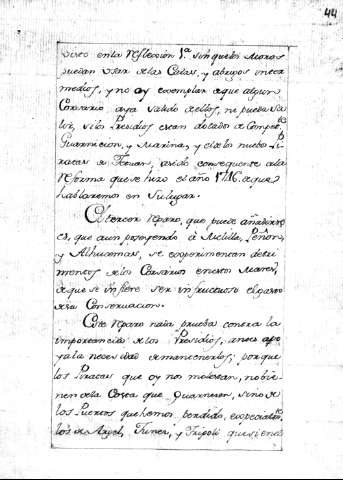 44
visto en la reflección 1ª sin que los Moros
puedan usar de las Calas, y abrigos inter
medios, y no ay exemplar de que algun
Corsario aya salido de ellos, ni pueda sa
lir, si los Presidios estan dotados de
Guarnicion, y Marina, y el de los
ratas de Tetuan, asido consequente a la
reforma que se hizo el año 1716. de que
hablaremos en su lugar.
El tercer reparo, que puede añadirse
es, que aun poseyendo á Melilla, Peñon,
y Alhucemas, se experimentan detri
mentos de los Corsarios en estos Mares,
de que se infiere ser infructuoso el gasto
de su Conservacion.
Este reparo nada prueba contra la
importancia de los Presidios, antes apo
ya la necesidad de mantenerlos; porque
los Piratas que oy nos molestan, no bie
nen de la Costa que guarnecen, sino de
los Puertos que hemos perdido, especialmte
los de Argel, Tunez, y Tripoli que siendo